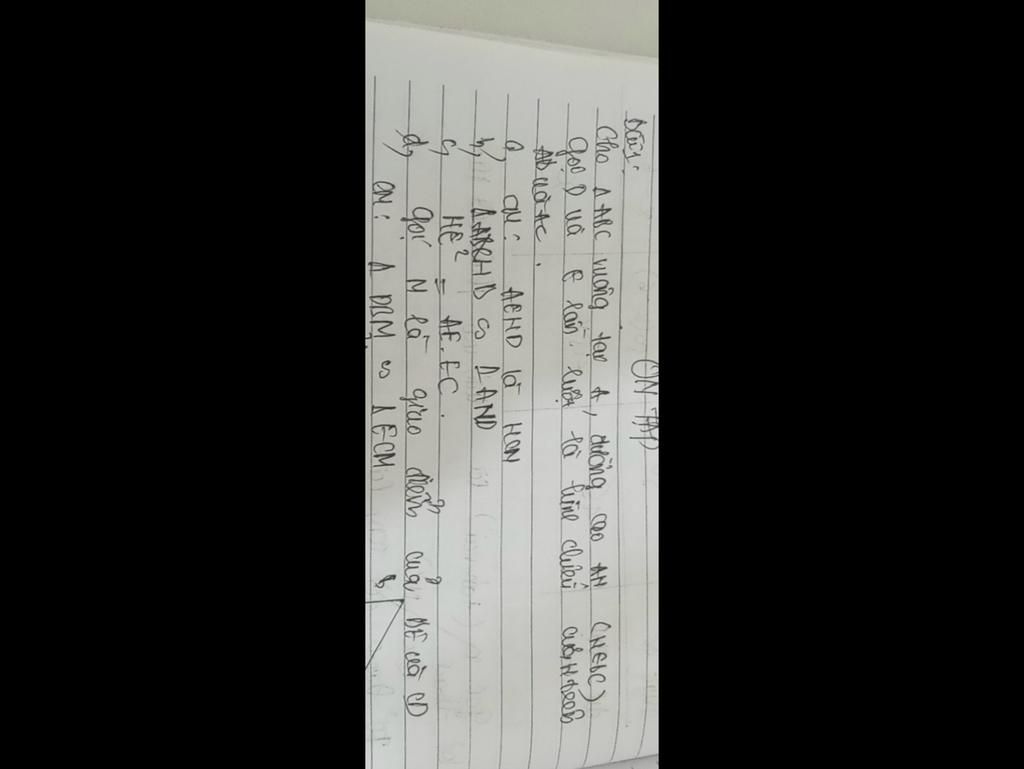 ÔN TẬP
Bài 1:
Cho Δ ABC vuông tại A, đường cao AH (HEBC)
Gọi D và E lần lượt là hình chiếu của H trên
AB và AC.
a, CM: AEHD là HCN
b, HBD ∽ Δ AHD
c, HE² = AE.EC.
d, Gọi M là giao điểm của BE và CD
CM: Δ DBM ∽ Δ ECM